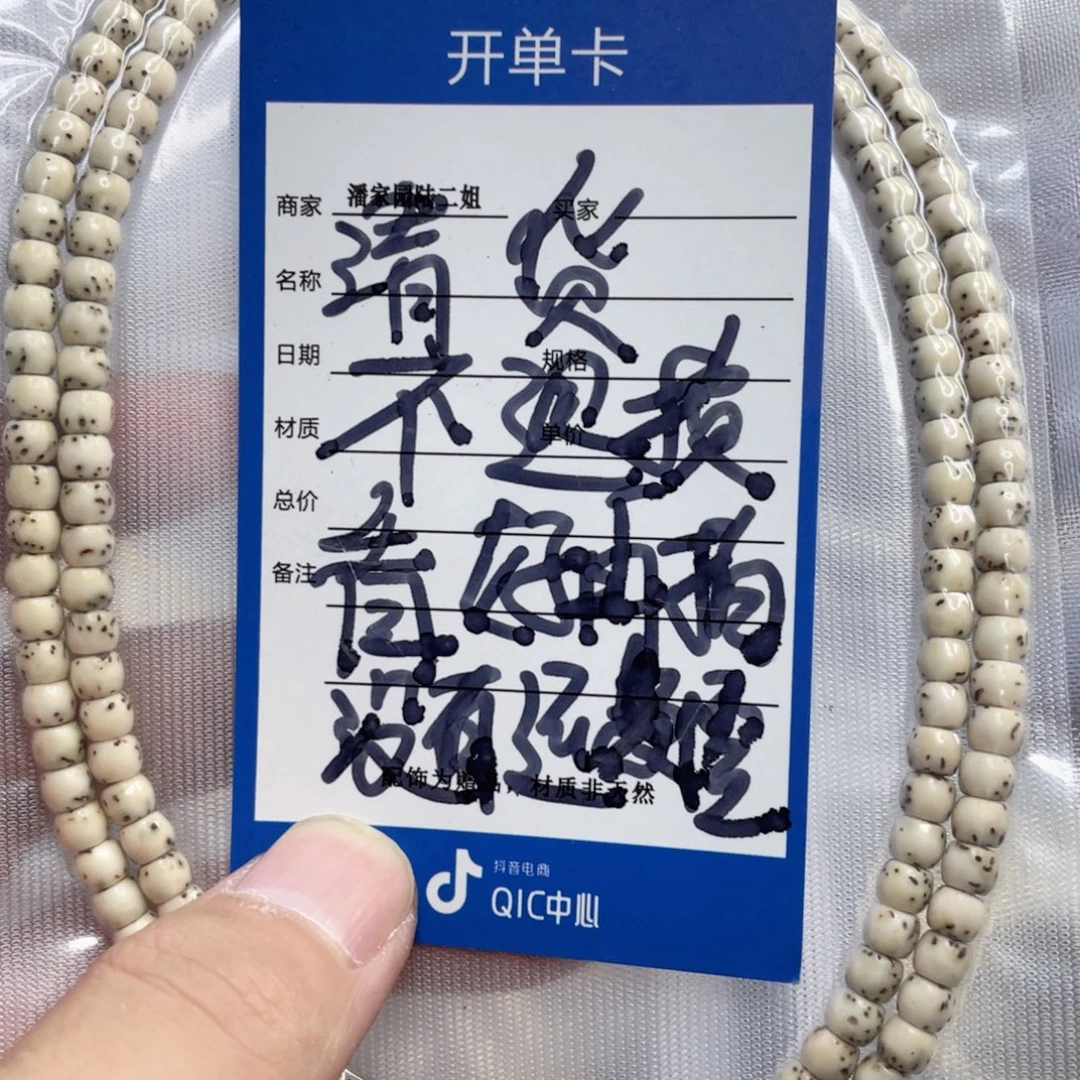 开单卡
商家 潘家园陆二姐 买家
名称
日期 规格
材质 单价
总价
备注
清货
不退换
看好再拍
没有
配饰为赠品，材质非天然
抖音电商
QIC中心